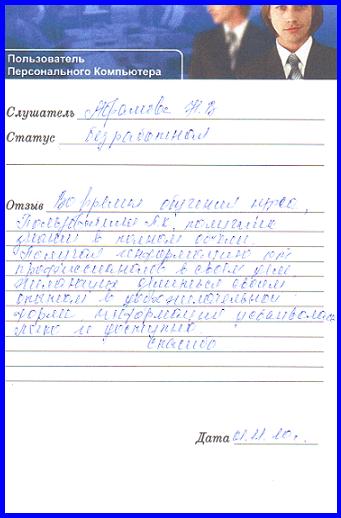 Пользователь
Персонального Компьютера
Слушатель Абрамова Н.В
Статус безработная
Отзыв Во время обучения курса
Пользователь ПК, получила
знания в полном объеме.
Получила информацию от
профессионалов в своём деле
делиться своим
опытом в доброжелательной
форме информация усваивалась
легко и доступно.
Спасибо
Дата 01.11.10г.